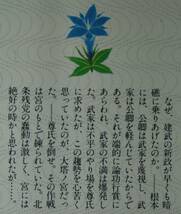 なぜ、建武の新政が早くも暗
礁に乗りあげたのか。一根本
には、公卿は武家を蔑視し、武
家は公卿を軽んじていたからで
ある。それが端的に論功行賞に
あらわれ、武家の不満は爆発し
た。武家は不平のやり場を尊氏
に求めたが、この趨勢を心苦く
思っていたのが、大塔ノ宮だっ
た。――尊氏を倒せ。その作戦
は宮のもとで練られていた。北
条残党の蠢動は激しく、宮には
絶好の時かと思われたが……。